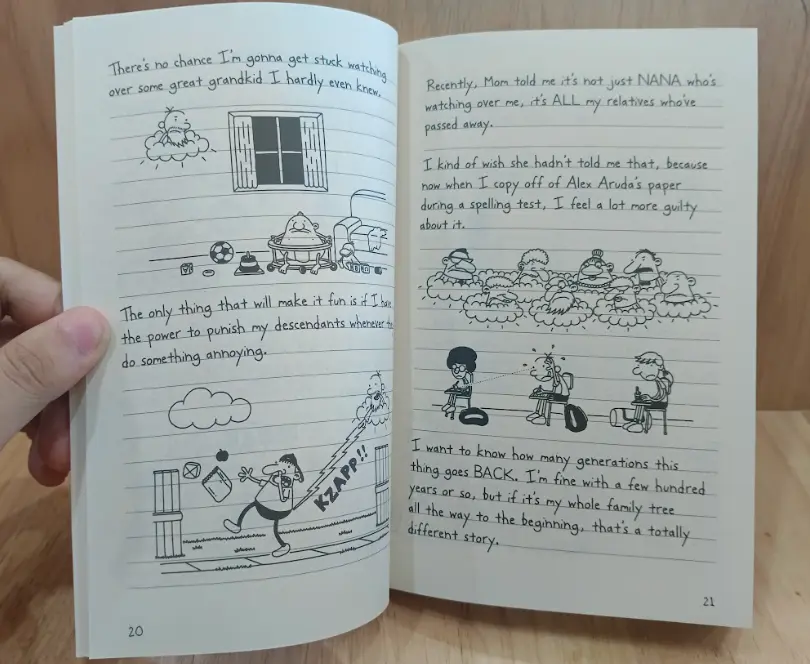 There's no chance I'm gonna get stuck watching
over some great grandkid I hardly even knew.
The only thing that will make it fun is if I have
the power to punish my descendants whenever
do something annoying.
KZAPP!!
20
Recently, Mom told me it's not just NANA who's
watching over me, it's ALL my relatives who've
passed away.
I kind of wish she hadn't told me that, because
now when I copy off of Alex Aruda's paper
during a spelling test, I feel a lot more guilty
about it.
I want to know how many generations this
thing goes BACK. I'm fine with a few hundred
years or so, but if it's my whole family tree
all the way to the beginning, that's a totally
different story.
21